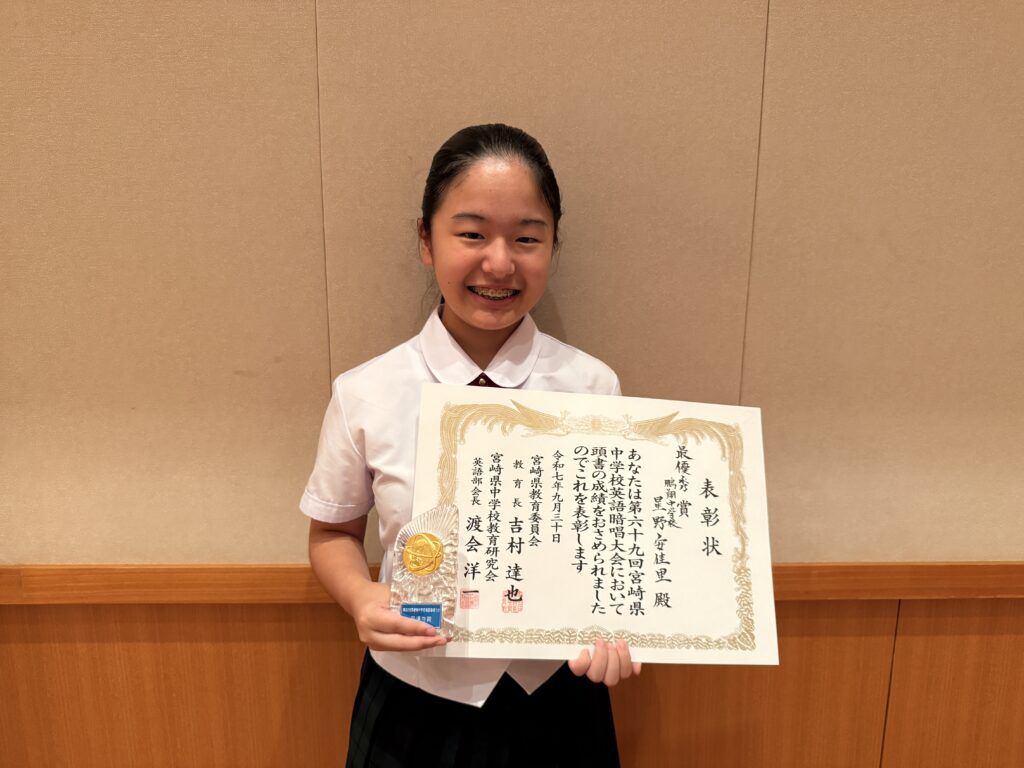 表彰状
最優秀賞
鵬翔中学校
星野安佳里 殿
あなたは第六十九回宮崎県
中学校英語暗唱大会において
頭書の成績をおさめられました
のでこれを表彰します
令和七年九月三十日
宮崎県教育委員会
教育長 吉村達也
宮崎県中学校教育研究会
英語部会長 渡会洋一